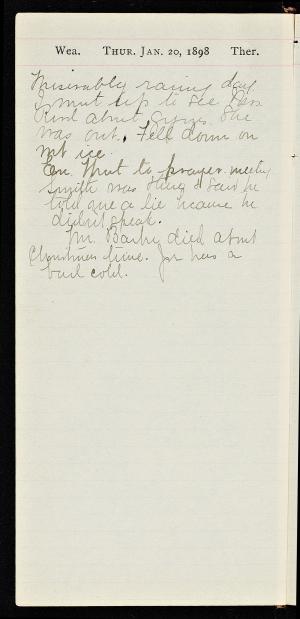 Wea. THUR. JAN. 20, 1898 Ther.
Miserably rainy day
I went up to see Miss
about gym. She
was out. Fell down on
wet ice.
Eve. Went to prayer meeting
Smith was there & said he
told one a lie because he
didn't speak.
Mr. died about
Christmas time. Jr has a
bad cold.